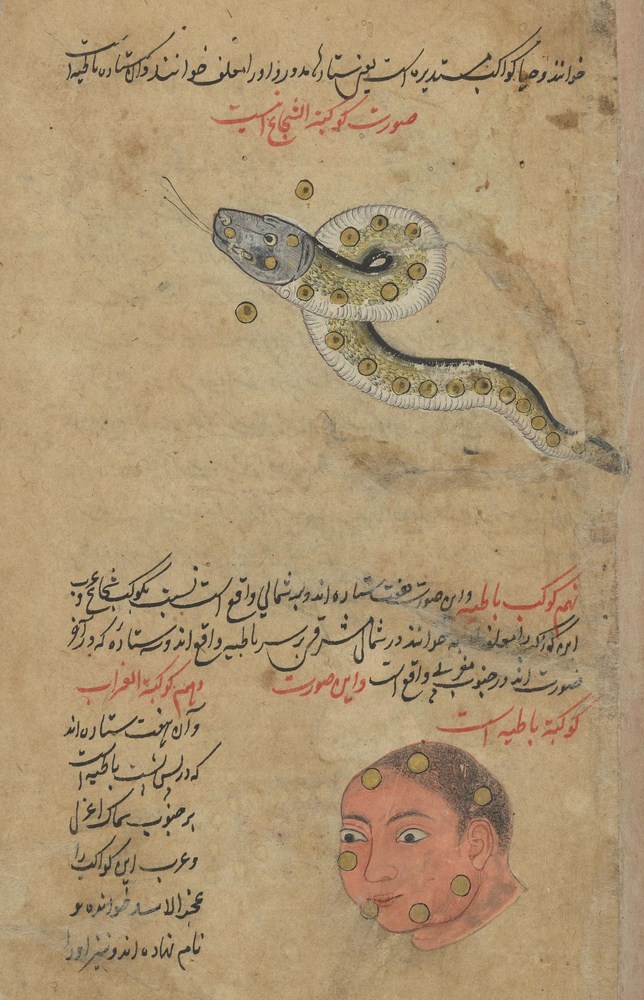 خوانند و خبا کواکب مستدیره است یعنی ستارها مدور و او را معلف خوانند و آن ستاره باطیه است
صورت کوکبة الشجاع اینست
نهم کوکب باطیه و این صورت هفت ستاره اند و به شمالی واقع است نسبت بکوکب شجاع و عرب
این کواکب را معلف خوانند در شمال شرقی بر سر باطیه واقع اند و سه ستاره که در آخر
صورت اند در جنوب مغربی واقع است و این صورت
کوکبة باطیه است
دهم کوکبة الغراب
و آن هفت ستاره اند
که در پس پشت باطیه است
بر جنوب سماک اعزل
و عرب این کواکب را
عجز الاسد خوانده
نام نهاده اند و نیز او را